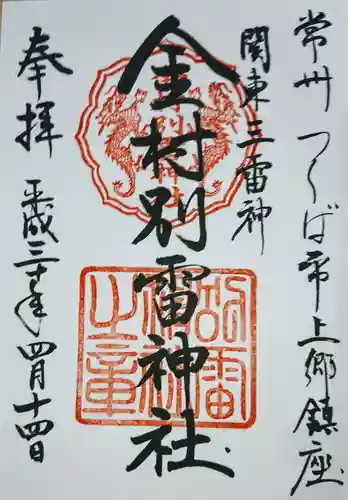 常州つくば市上郷鎮座
関東三雷神
金村別雷神社
奉拝
平成三十年四月十四日